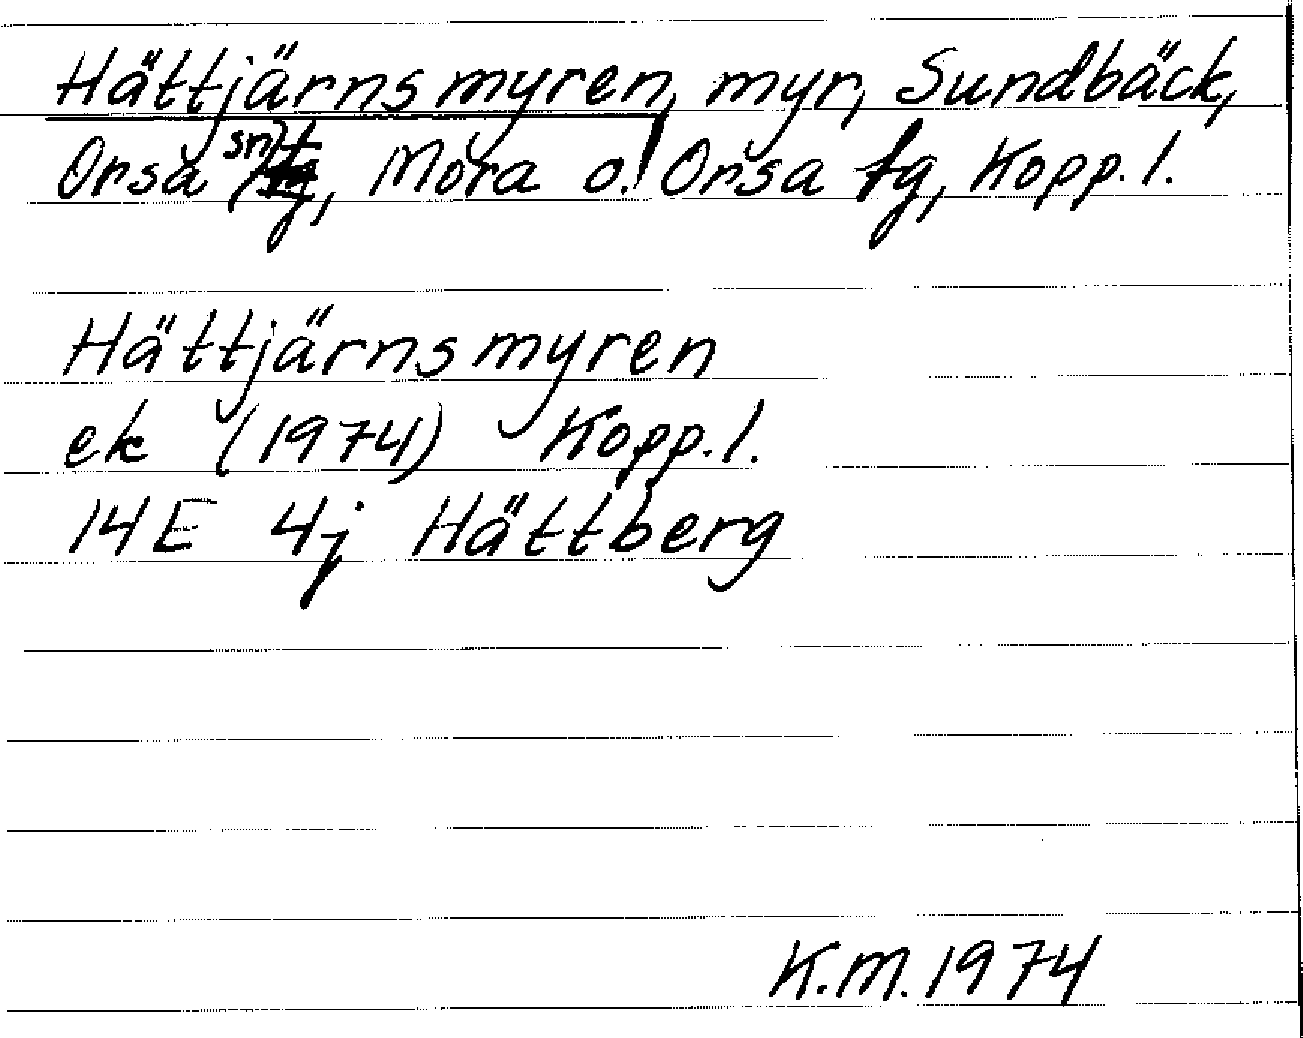 Hättjärnsmyren, myr, Sundbäck,
Orsa sn, Mora o. Orsa tg, Kopp. l.
Hättjärnsmyren
ek (1974) Kopp. l.
14E 4j Hättberg
K.M. 1974